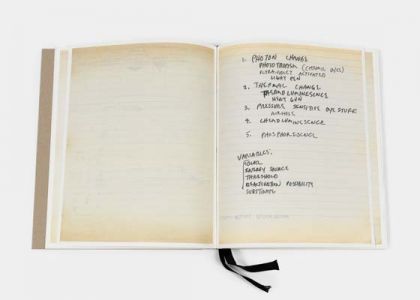 1. PHOTON CHANGE
PHOTOTROPISM (CHROMIC DYES)
ULTRA-VIOLET ACTIVATED
LIGHT PEN
2. THERMAL CHANGE
THERMOLUMINESENCE
HEAT GUN
3. PRESSURE SENSITIVE DYE STUFF
AIRHOSE
4. CHEMOLUMINESENCE
5. PHOSPHORESENCE
VARIABLES:
COLOR
ENERGY SOURCE
THRESHOLD
REACTIVATION POSSIBILITY
SUBSTRATE